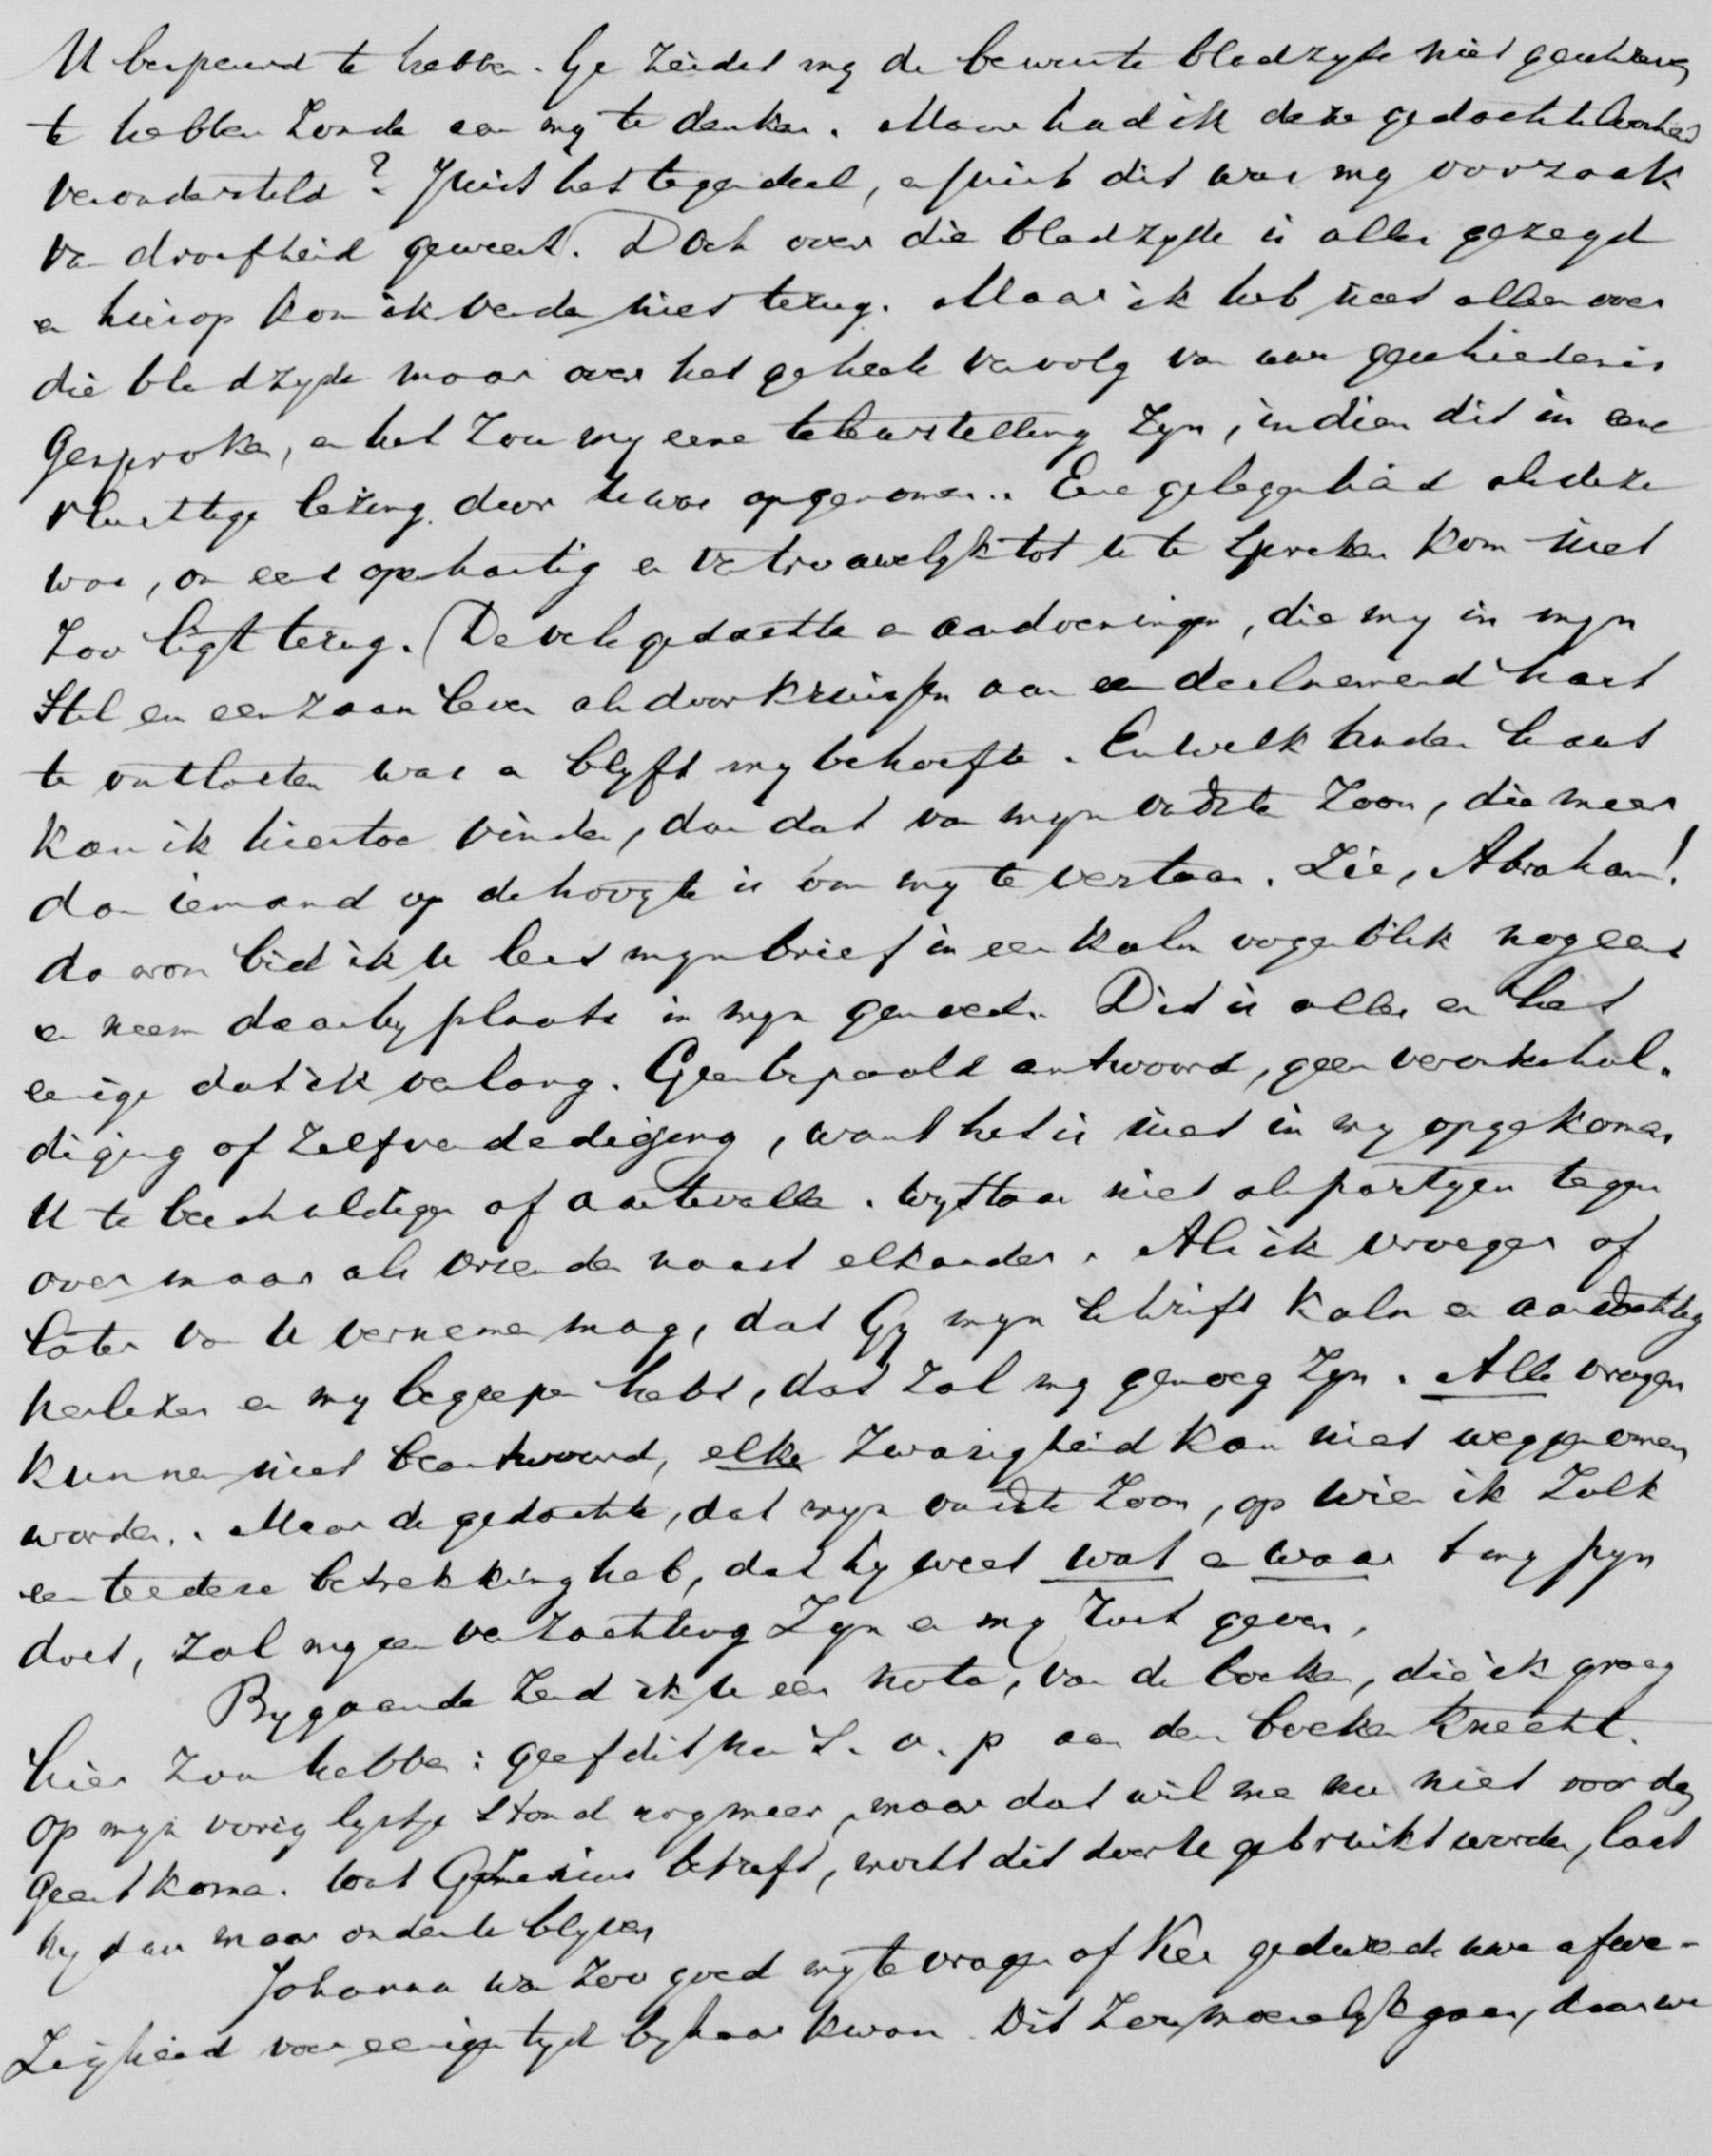 U bespeurd te hebben. Ge zeidet my de bewuste bladzyde niet geschreven
te hebben zonder aan my te denken. Maar had ik deze gedachteloosheid
verondersteld? Juist het tegendeel, en juist dit was my oorzaak
van droefheid geweest. Doch over die bladzyde is alles gezegd
en hierop kom ik verder niet terug. Maar ik heb niet alleen over
die bladzyde maar over het geheele vervolg van uwe geschiedenis
gesproken, en het zou my eene teleurstelling zyn, indien dit in eene
vluchtige lezing door U was opgenomen. Eene gelegenheid als deze
was, om eens openhartig en vertrouwelyk tot U te spreken kom niet
zoo ligt terug. De vele gedachten en aandoeningen, die my in myn
stil en eenzaam leven als doorkruisen aan een deelnemend hart
te ontlasten was en blyft my behoefte. En welk ander hart
kan ik hiertoe vinden, dan dat van myn oudsten zoon, die meer
dan iemand op de hoogte is om my te verstaan. Zie, Abraham!
daarom bid ik U lees myn brief in een kalm oogenblik nog eens
en neem daarby plaats in myn gemoed. Dit is alles en het
eenige dat ik verlang. Geen bepaald antwoord, geen verontschul-
diging of zelfverdediging, want het is niet in my opgekomen
U te beschuldigen of aantevallen. Wy staan niet als partyen tegen
over maar als vrienden naast elkander. Als ik vroeger of
later van U vernemen mag, dat Gy myn schrift kalm en aandachtig
herlezen en my begrepen hebt, dat zal my genoeg zyn. Alle vragen
kunnen niet beantwoord, elke zwarigheid kan niet weggenomen
worden. Maar de gedachte, dat myn oudste zoon, op wien ik zulk
een teedere betrekking heb, dat hy weet wat en waar 't my pyn
doet, zal my een verzachting zyn en my rust geven.
Bygaande zend ik U een nota, van de boeken, die ik graag
hier zou hebben: geef dit nu s. v. p aan den boeken knecht.
Op myn vorig lystje stond nog meer, maar dat wil me nu niet voor den
geest komen. Wat Gesenius betreft, mocht dit door U gebruikt worden, laat
hy dan maar onder U blyven
Johanna was zoo goed my te vragen of Kee gedurende uwe afwe-
zigheid voor eenigen tyd by haar kwam. Dit zou moeielyk gaan, daar we